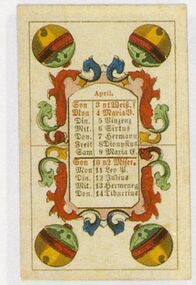 April.
Son 3 n1 Weiß. S
Mon 4 Maria V.
Din. 5 Vinzenz
Mit. 6 Sixtus
Don. 7 Hermann
Freit 8 Dionysius
Sam 9 Maria C.
Son 10 n2 Miser.
Mon 11 Leo P.
Din. 12 Julius
Mit. 13 Hermeneg
Don. 14 Tiburtius